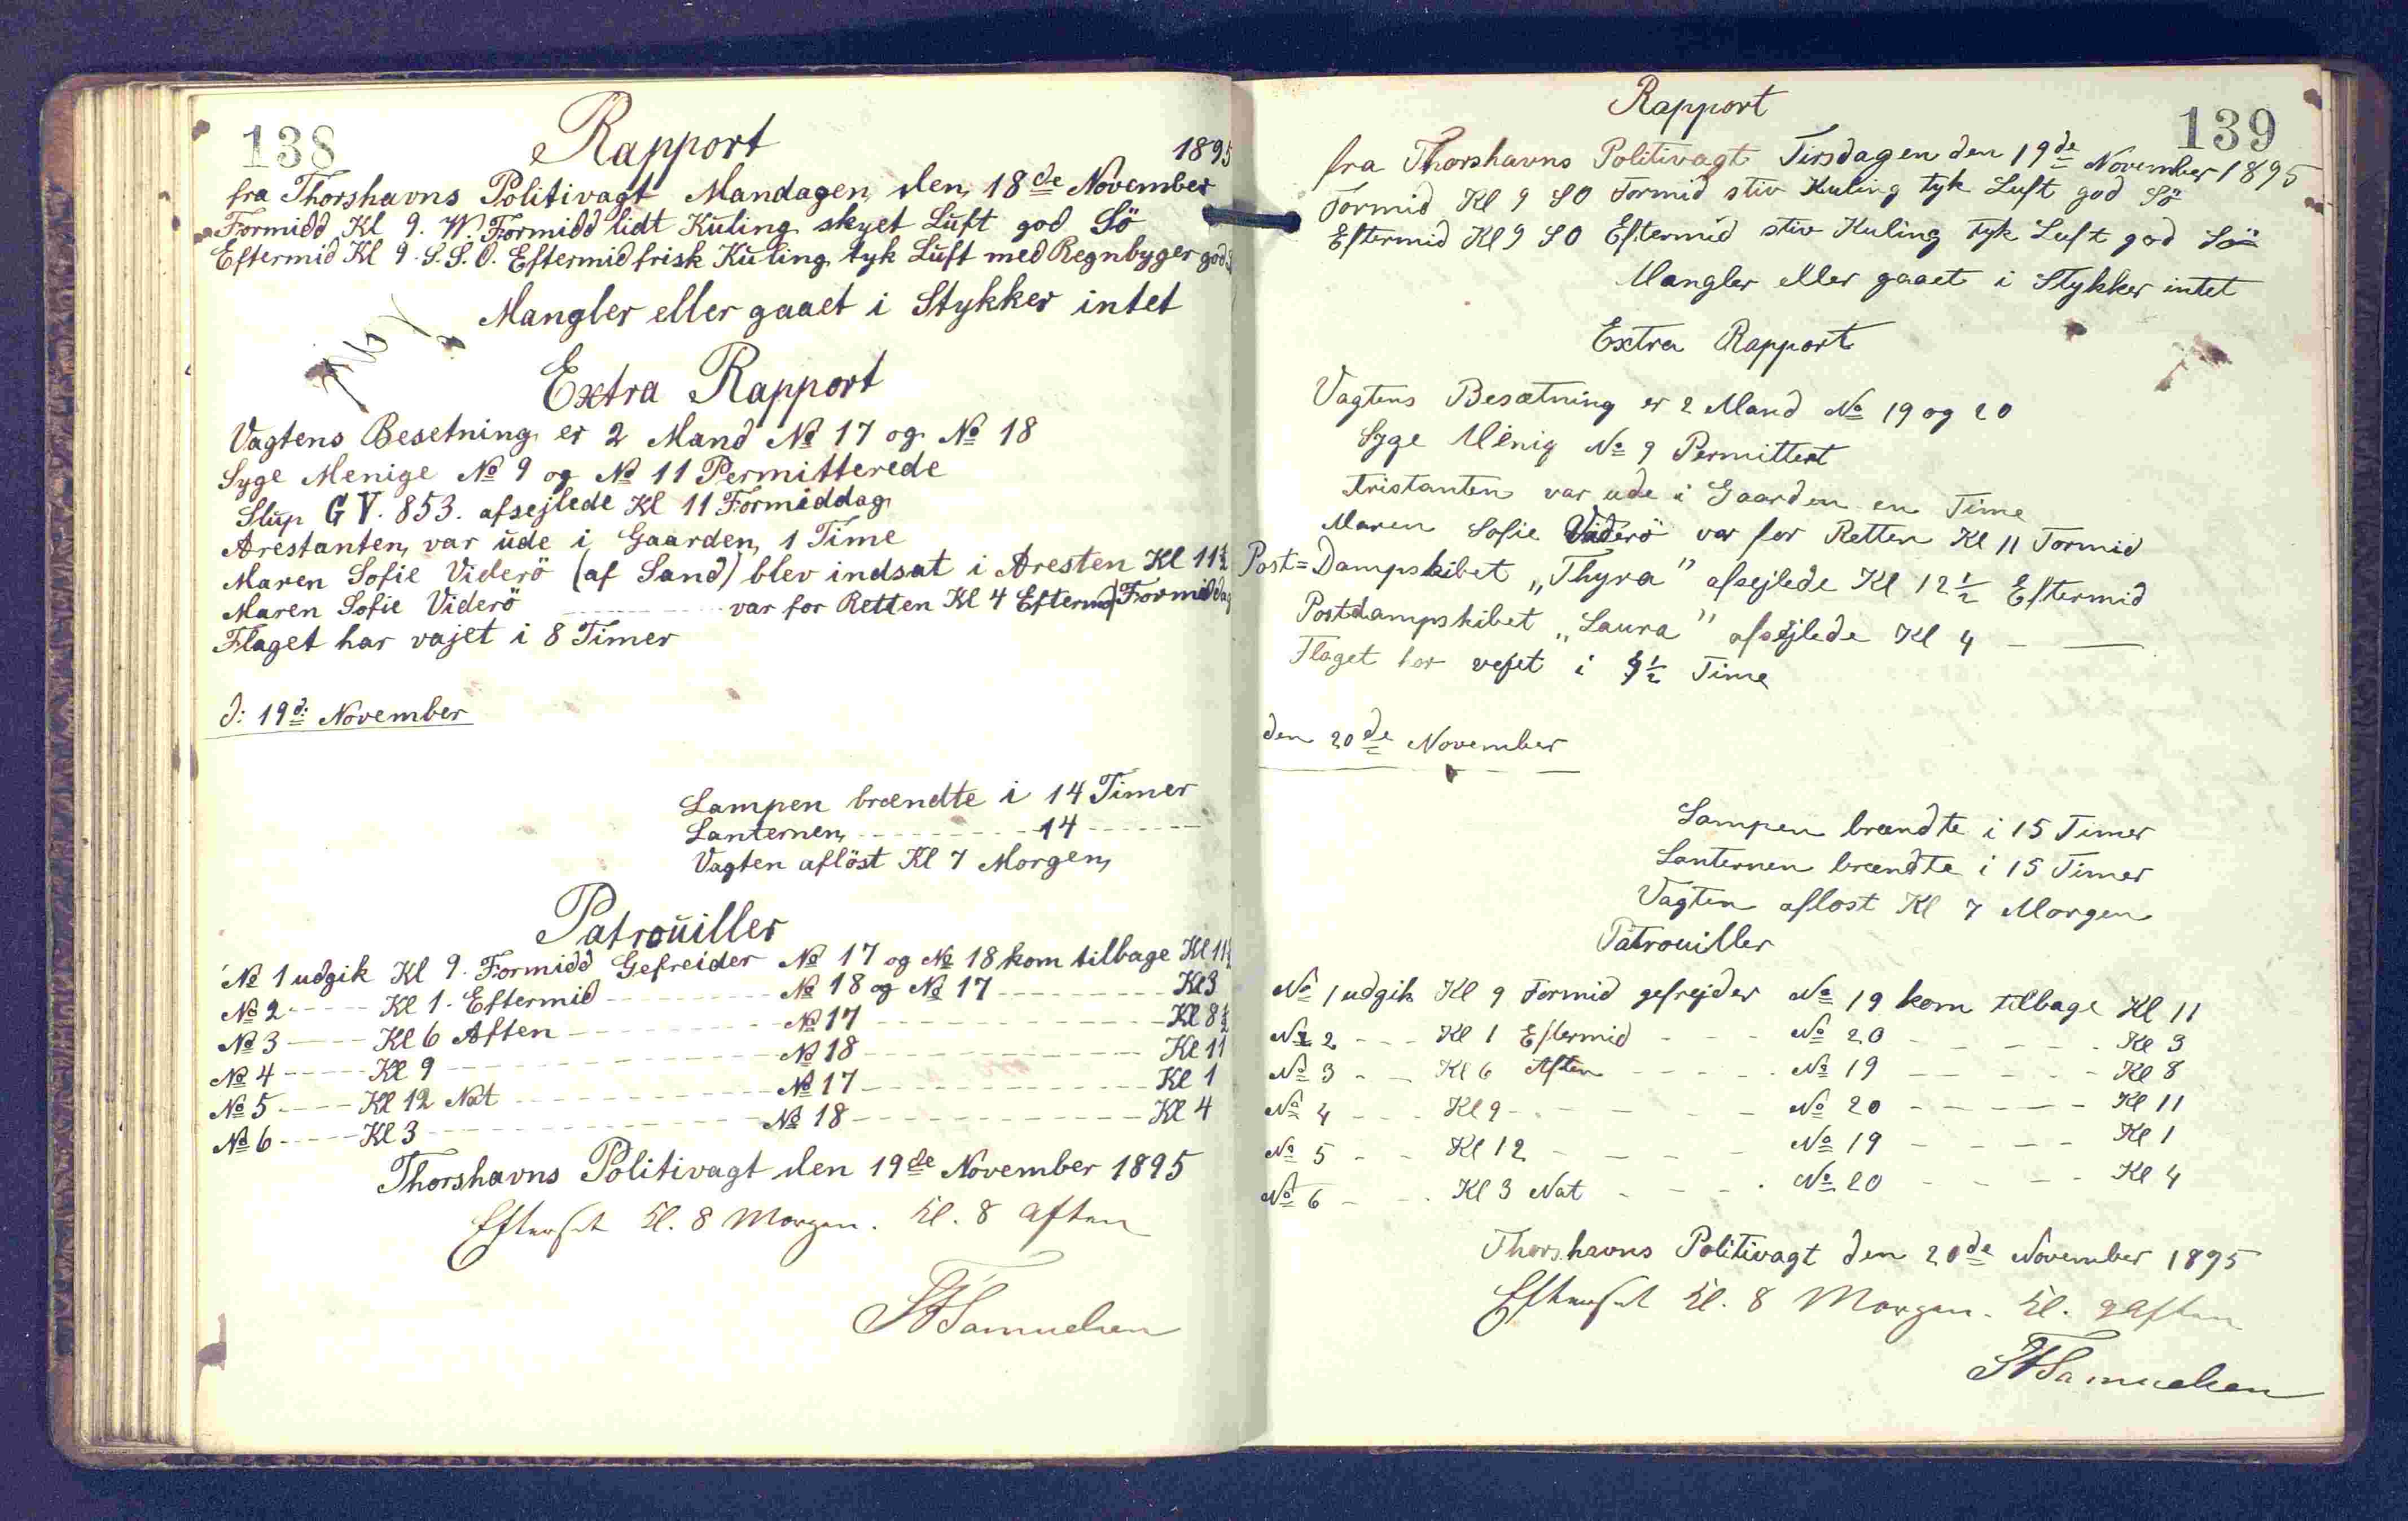 138
Rapport
1895
fra Thorshavns Politivagt Mandagen den 18de November
Formidd Kl 9. W. Formidd lidt Kuling skyet Luft god Sö
Eftermid Kl 9. S.S.O. Eftermid frisk Kuling tyk Luft med Regnbyger god
Mangler eller gaaet i Stykker intet
Extra Rapport
Vagtens Besetning er 2 Mand No 17 og No 18
Syge Menige No 9 og No 11 Permitterede
Slup GV. 853. afsejlede Kl 11 Formiddag
Arestanten var ude i Gaarden 1 Time
Maren Sofie Viderö (af Sand) blev indsat i Aresten Kl 11½
Formiddag
Maren Sofie Viderö var for Retten Kl 4 Eftermid
Flaget har vajet i 8 Timer
d: 19d: November
Lampen brændte i 14 Timer
Lanternen 14
Vagten aflöst Kl 7 Morgen
Patrouiller
No 1 udgik Kl 9. Formidd Gefreider No 17 og No 18 kom tilbage Kl 11½
No 2 Kl 1. Eftermid No 18 og No 17 Kl 3
No 3 Kl 6 Aften No 17 Kl 8½
No 4 Kl 9 No 18 Kl 11
No 5 Kl 12 Nat No 17 Kl 1
No 6 Kl 3 No 18 Kl 4
Thorshavns Politivagt den 19de November 1895
Efterset Kl. 8 Morgen. Kl. 8 Aften
Samuelsen
139
Rapport
fra Thorshavns Politivagt Tirsdagen den 19de November 1895
Formid Kl 9 SO Formid stiv Kuling tyk Luft god Sö
Eftermid Kl 9 SO Eftermid stiv Kuling tyk Luft god Sö
Mangler eller gaaet i Stykker intet
Extra Rapport
Vagtens Besætning er 2 Mand No 19 og 20
Syge Menig No 9 Permittert
Aristanten var ude i Gaarden en Time
Maren Sofie Viderö var for Retten Kl 11 Formid
Post=Dampskibet „Thyra" afsejlede Kl 12½ Eftermid
Postdampskibet „Laura" afsejlede Kl 4 — —
Flaget har vejet i ½ Time
den 20de November
Lampen brændte i 15 Timer
Lanternen brændte i 15 Timer
Vagten aflöst Kl 7 Morgen
Patrouiller
No 1 udgik Kl 9 Formid gefrejder No 19 kom tilbage Kl 11
No 2 Kl 1 Eftermid No 20 Kl 3
No 3 Kl 6 Aften No 19 Kl 8
No 4 Kl 9 No 20 Kl 11
No 5 Kl 12 No 19 Kl 1
No 6 Kl 3 Nat No 20 Kl 4
Thorshavns Politivagt den 20de November 1895
Efterset Kl. 8 Morgen. Kl. 9 Aften
Samuelsen